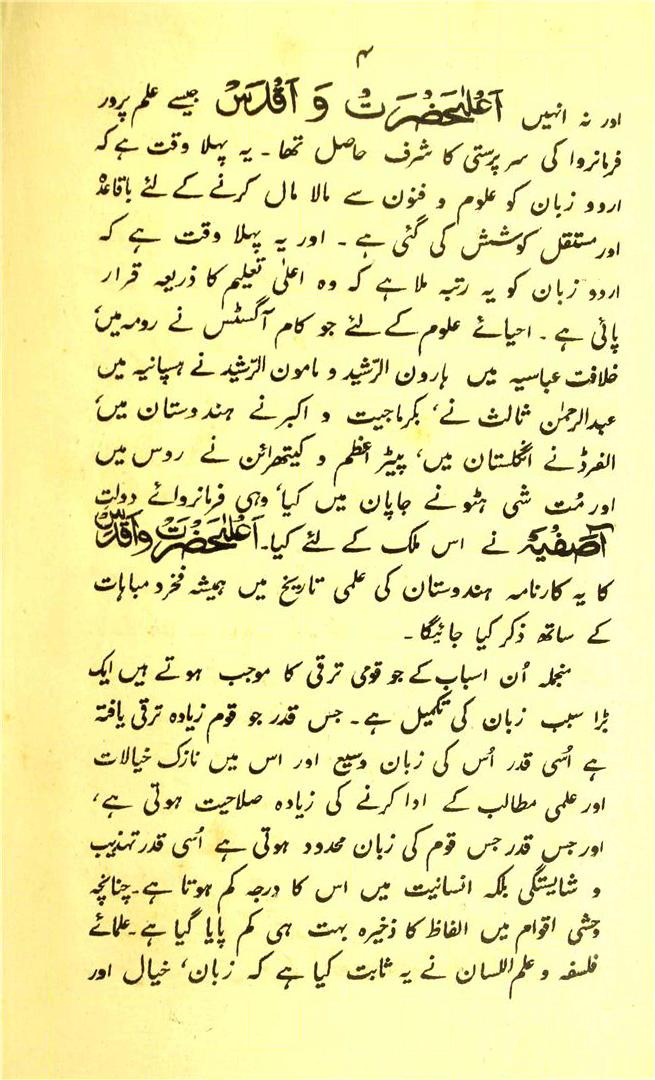 ۴
اور نہ انہیں اَعْلیٰحَضْرَتْ وَ اَقْدَسْ جیسے علم پرور
فرمانروا کی سرپرستی کا شرف حاصل تھا ۔ یہ پہلا وقت ہے کہ
اردو زبان کو علوم و فنون سے مالا مال کرنے کے لئے باقاعدہ
اور مستقل کوشش کی گئی ہے ۔ اور یہ پہلا وقت ہے کہ
اردو زبان کو یہ رتبہ ملا ہے کہ وہ اعلٰی تعلیم کا ذریعہ قرار
پائی ہے ۔ احیائے علوم کے لئے جو کام آگسٹس نے رومہ میں'
خلافت عباسیہ میں ہارون الرّشید و مامون الرّشید نے ہسپانیہ میں
عبدالرحمٰن ثالث نے' بکرماجیت و اکبر نے ہندوستان میں'
الفرڈ نے انگلستان میں' پیٹر اعظم و کیتھرائن نے روس میں
اور مُت شی ہٹو نے جاپان میں کیا' وہی فرمانروائے دولت
آصفْیہْ نے اس ملک کے لئے کیا۔ اَعْلیٰحَضْرَتْ وَاَقْدَسْ
کا یہ کارنامہ ہندوستان کی علمی تاریخ میں ہمیشہ فخرو مباہات
کے ساتھ ذکر کیا جائیگا ۔
منجملہ اُن اسباب کے جو قومی ترقی کا موجب ہوتے ہیں ایک
بڑا سبب زبان کی تکمیل ہے ۔ جس قدر جو قوم زیادہ ترقی یافتہ
ہے اُسی قدر اُس کی زبان وسیع اور اس میں نازک خیالات
اور علمی مطالب کے ادا کرنے کی زیادہ صلاحیت ہوتی ہے'
اور جس قدر جس قوم کی زبان محدود ہوتی ہے اُسی قدر تہذیب
و شایستگی بلکہ انسانیت میں اس کا درجہ کم ہوتا ہے ۔ چنانچہ
وحشی اقوام میں الفاظ کا ذخیرہ بہت ہی کم پایا گیا ہے ۔ علمائے
فلسفہ و علم اللسان نے یہ ثابت کیا ہے کہ زبان' خیال اور